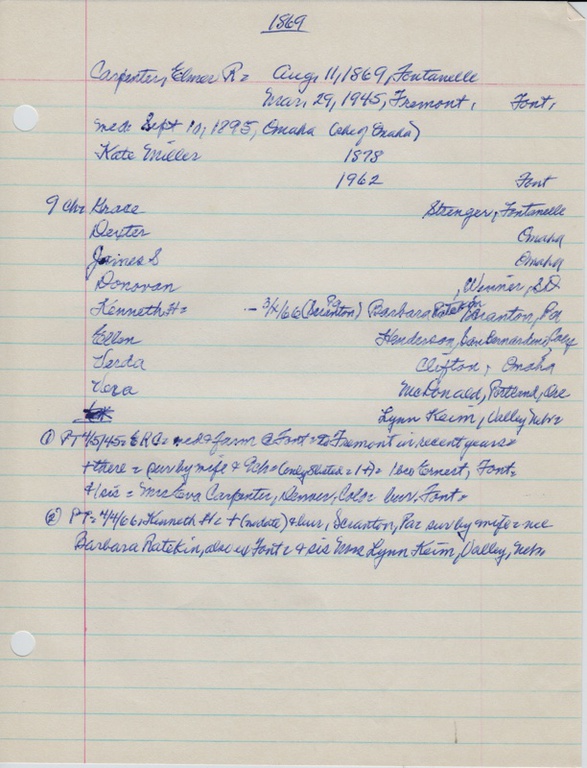 1869
Carpenter, Elmer R= Aug. 11, 1869, Fontanelle
Mar. 29, 1945, Fremont, Font,
med: Sept 10, 1895, Omaha (she of Omaha)
Kate Miller 1878
1962 Font
9 ch= Grace Strenger, Fontanelle
Dexter Omaha
James S Omaha
Donovan , Winner, SD
Kenneth H= - 3/x/66 (Scranton) Pa Barbara Ratekin Scranton, Pa
Ellen Henderson, San Bernardino, Calif
Verda Clifton, Omaha
Vera McDonald, Portland, Ore
Lynn Keim, Valley Neb=
① PT 4/5/45= ERC= farm @ Font= to Fremont in recent years=
+ there = sur by wife & 9 ch= (only 8 listed = 1+)= 1 bro Ernest, Font=
& 1 sis = Mrs Eva Carpenter, Denver, Colo= bur. Font=
② PT= 4/4/66= Kenneth H= + (no date) & bur, Scranton, Pa= sur by wife= nee
Barbara Ratekin, also of Font= & sis Mrs Lynn Keim, Valley, Neb=